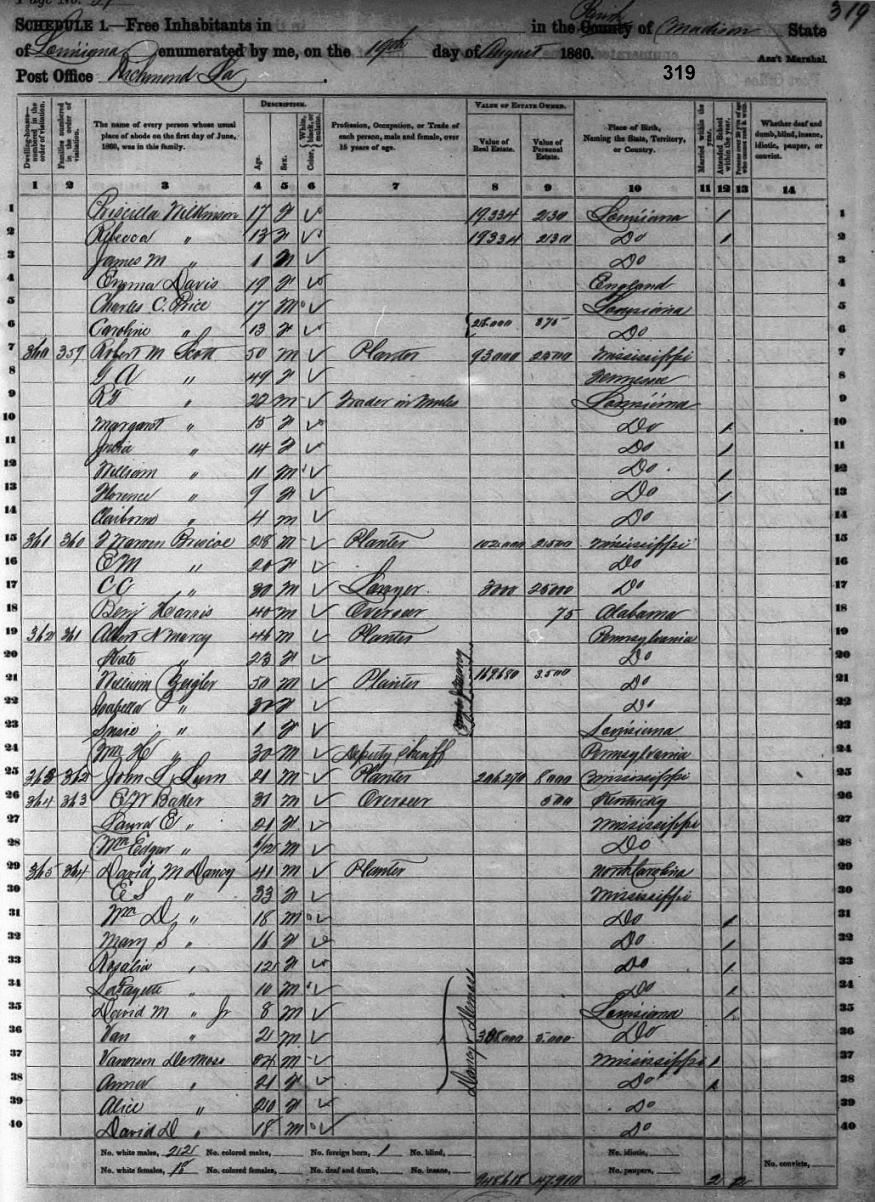 Page No. 
319
SCHEDULE 1.—Free Inhabitants in in the Parish County of Madison State
of Louisiana enumerated by me, on the 19th day of August 1860. Ass't Marshal.
Post Office Richmond La 319
Dwelling-houses—numbered in the order of visitation. Families numbered in the order of visitation. The name of every person whose usual place of abode on the first day of June, 1860, was in this family. DESCRIPTION. Age. Sex. Color, White, black, or mulatto. Profession, Occupation, or Trade of each person, male and female, over 15 years of age. VALUE OF ESTATE OWNED. Value of Real Estate. Value of Personal Estate. Place of Birth, Naming the State, Territory, or Country. Married within the year. Attended School within the year. Persons over 20 y'rs of age who cannot read & write. Whether deaf and dumb, blind, insane, idiotic, pauper, or convict.
1 2 3 4 5 6 7 8 9 10 11 12 13 14
1 Priscilla Wilkinson 17 F 19334 2130 Louisiana / 1
2 Rebecca " 13 F 19334 2130 Do / 2
3 James M " 1 M Do 3
4 Emma Davis 19 F England 4
5 Charles C. Price 17 M Louisiana 5
6 Caroline " 13 F 25.000 875 Do 6
7 360 359 Robert M Scott 50 M Planter 93000 2500 Mississippi 7
8 " 49 F Tennessee 8
9 " 22 M Trader in Mules Louisiana 9
10 Margaret " 15 F Do / 10
11 Julia " 14 F Do / 11
12 William " 11 M Do / 12
13 Florence " 9 F Do / 13
14 Claiborne " 4 M Do 14
15 361 360 Warren Briscoe 28 M Planter 102.000 2500 Mississippi 15
16 E M " 20 F Do 16
17 C C " 30 M Lawyer 3000 25000 Do 17
18 Benj Harris 40 M Overseer 75 Alabama 18
19 362 361 Albert N Marcy 46 M Planter Pennsylvania 19
20 Kate " 23 F Do 20
21 William Zeigler 50 M Planter 169680 3.500 Do 21
22 Isabella " F Do 22
23 Susie " 1 F Louisiana 23
24 Wm H " 30 M Deputy Sheriff Pennsylvania 24
25 363 362 John Lum 21 M Planter 206270 8000 Mississippi 25
26 364 363 C W Baker 31 M Overseer 500 Kentucky 26
27 Laura E " 21 F Mississippi 27
28 Wm Edgar " M Do 28
29 365 364 David M Dancy 41 M Planter North Carolina 29
30 E S " 33 F Mississippi 30
31 Wm D " 18 M Do / 31
32 Mary S " 16 F Do / 32
33 Rosalia " 12 F Do / 33
34 LaFayette " 10 M Do / 34
35 David M " Jr 8 M Louisiana / 35
36 Van " 2 M 5.000 Do 36
37 DeMoss 24 M Mississippi / 37
38 Anna " 21 F Do / 38
39 Alice " 20 F Do 39
40 David D " 18 M Do 40
Dancy & Demoss
No. white males, No. colored males, No. foreign born, 1 No. blind, No. idiotic,
No. white females, 18 No. colored females, No. deaf and dumb, No. insane, 47.910 No. paupers, 2 12 No. convicts,